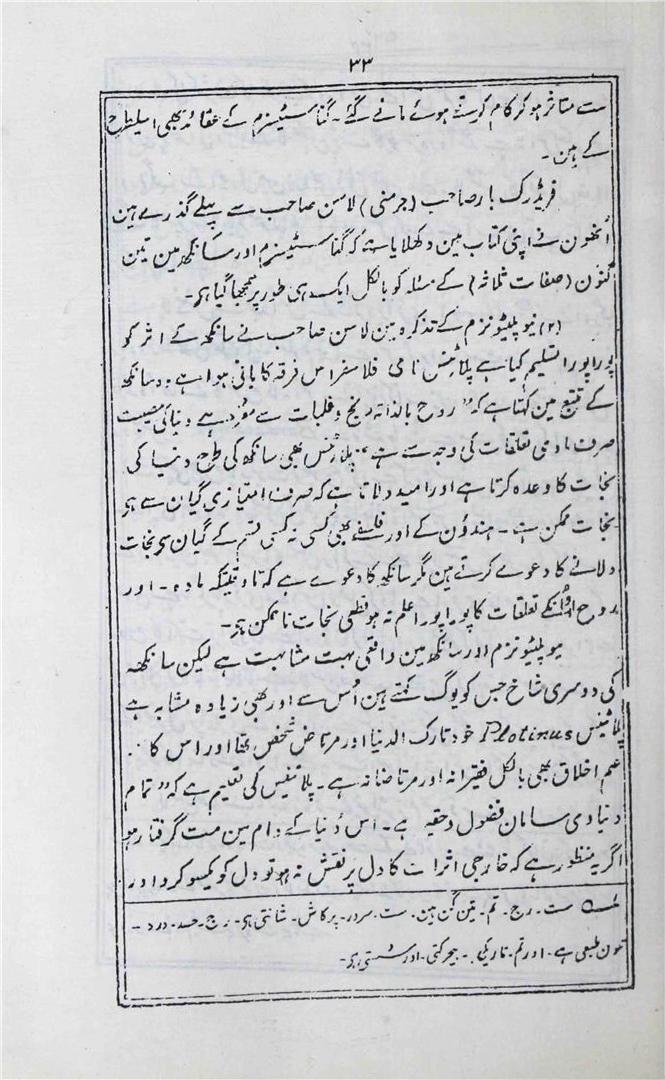 ۳۳
سے متاثر ہوکر کام کرتے ہوئے مانے گئے۔ گناسٹیزم کے عقائد بھی اسیطرح
کے ہین۔
فریڈرک بار صاحب (جرمنی) لاسن صاحب سے پہلے گذرے ہین
اُنھون نے اپنی کتاب مین دکھلایا ہے کہ گناسٹیزم اور سانکھ مین تین
گنون (صفات ثلاثہ) کے مسئلہ کو بالکل ایک ہی طور پر سمجھا گیا ہی۔
(۲) نیو پلیٹونزم کے تذکرہ مین لاسن صاحب نے سانکھ کے اثر کو
پورا پورا تسلیم کیا ہے پلاٹینس نامی فلاسفر اس فرقہ کا بانی ہوا ہے۔ وہ سانکھ
کے تتبع مین کہتا ہے کہ "روح بالذات رنج و غلبات سے مفرد ہے دنیائی مصیبت
صرف مادی تعلقات کی وجہ سے ہے" پلاٹینس بھی سانکھ کی طرح دنیا کی
نجات کا وعدہ کرتا ہے اور امید دلاتا ہے کہ صرف امتیازی گیان سے ہی
نجات ممکن ہے۔ ہندوُن کے اور فلسفے بھی کسی نہ کسی قسم کے گیان سی نجات
دلانے کا دعوے کرتے ہین مگر سانکھ کا دعوے ہے کہ تاوقتیکہ مادہ۔ اور
روح اور اُنکے تعلقات کا پورا پورا علم نہ ہو قطعی نجات ناممکن ہی۔
نیو پلیٹونزم اور سانکھ مین واقعی بہت مشابہت ہے لیکن سانکھ
کی دوسری شاخ جس کو یوگ کہتے ہین اُس سے اور بھی زیادہ مشابہ ہے
پلاٹینس Plotinus خود تارک الدنیا اور مرتاض شخص تھا اور اس کا
علم اخلاق بھی بالکل فقیرانہ اور مرتاضانہ ہے۔ پلاٹینس کی تعلیم ہے کہ "تمام
دنیاوی سامان فضول و حقیر ہے۔ اس دُنیا کے دام مین مت گرفتار ہو
اگر یہ منظور ہے کہ خارجی اثرات کا دل پر نقش نہ ہو تو دل کو یکسو کرو اور
ست۔ رج۔ تم۔ تین گن ہین۔ ست۔ سرور۔ پرکاش۔ شانتی ہی۔ رج۔ حسد۔ درد۔
طبعی ہے۔ اور تم۔ تاریکی۔ بیحرکتی۔ اور سُستی ہی۔